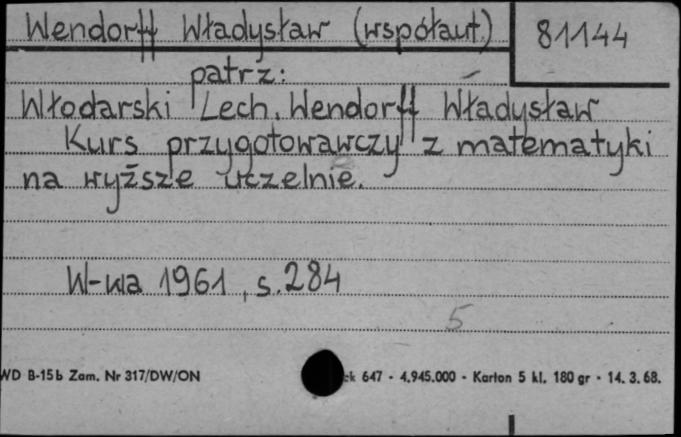 Wendorff Władysław (współaut.) 81144
patrz:
Włodarski Lech, Wendorff Władysław
Kurs przygotowawczy z matematyki
na wyższe uczelnie.
W-wa 1961, s. 284
5
WD B-15b Zam. Nr 317/DW/ON 647 - 4.945.000 - Karton 5 kl. 180 gr - 14.3.68.